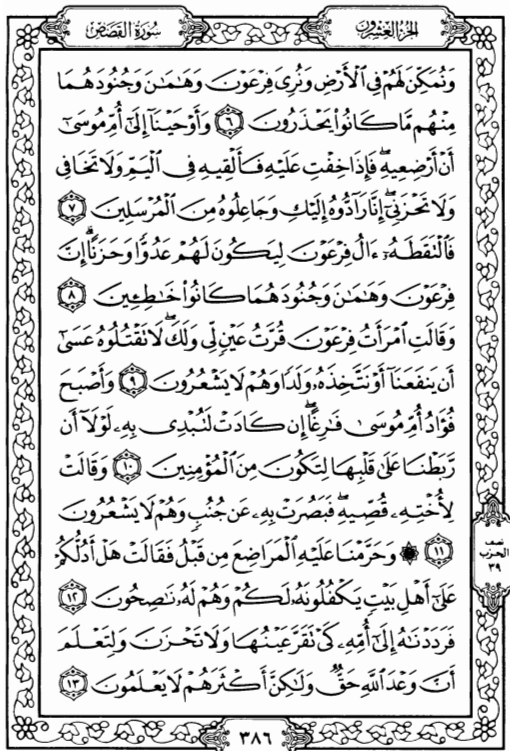 الجزء العشرون
سورة القصص
وَنُمَكِّنَ لَهُمْ فِي ٱلْأَرْضِ وَنُرِيَ فِرْعَوْنَ وَهَٰمَٰنَ وَجُنُودَهُمَا
مِنْهُم مَّا كَانُوا۟ يَحْذَرُونَ ٦ وَأَوْحَيْنَآ إِلَىٰٓ أُمِّ مُوسَىٰٓ
أَنْ أَرْضِعِيهِ ۖ فَإِذَا خِفْتِ عَلَيْهِ فَأَلْقِيهِ فِي ٱلْيَمِّ وَلَا تَخَافِي
وَلَا تَحْزَنِيٓ ۖ إِنَّا رَآدُّوهُ إِلَيْكِ وَجَاعِلُوهُ مِنَ ٱلْمُرْسَلِينَ ٧
فَٱلْتَقَطَهُۥٓ ءَالُ فِرْعَوْنَ لِيَكُونَ لَهُمْ عَدُوًّا وَحَزَنًا ۗ إِنَّ
فِرْعَوْنَ وَهَٰمَٰنَ وَجُنُودَهُمَا كَانُوا۟ خَٰطِـِٔينَ ٨
وَقَالَتِ ٱمْرَأَتُ فِرْعَوْنَ قُرَّتُ عَيْنٍ لِّي وَلَكَ ۖ لَا تَقْتُلُوهُ عَسَىٰٓ
أَن يَنفَعَنَآ أَوْ نَتَّخِذَهُۥ وَلَدًا وَهُمْ لَا يَشْعُرُونَ ٩ وَأَصْبَحَ
فُؤَادُ أُمِّ مُوسَىٰ فَٰرِغًا ۖ إِن كَادَتْ لَتُبْدِي بِهِۦ لَوْلَآ أَن
رَّبَطْنَا عَلَىٰ قَلْبِهَا لِتَكُونَ مِنَ ٱلْمُؤْمِنِينَ ١٠ وَقَالَتْ
لِأُخْتِهِۦ قُصِّيهِ ۖ فَبَصُرَتْ بِهِۦ عَن جُنُبٍ وَهُمْ لَا يَشْعُرُونَ
١١ ۞ وَحَرَّمْنَا عَلَيْهِ ٱلْمَرَاضِعَ مِن قَبْلُ فَقَالَتْ هَلْ أَدُلُّكُمْ
عَلَىٰٓ أَهْلِ بَيْتٍ يَكْفُلُونَهُۥ لَكُمْ وَهُمْ لَهُۥ نَٰصِحُونَ ١٢
فَرَدَدْنَٰهُ إِلَىٰٓ أُمِّهِۦ كَيْ تَقَرَّ عَيْنُهَا وَلَا تَحْزَنَ وَلِتَعْلَمَ
أَنَّ وَعْدَ ٱللَّهِ حَقٌّ وَلَٰكِنَّ أَكْثَرَهُمْ لَا يَعْلَمُونَ ١٣
نصف
الحزب
٣٩
٣٨٦